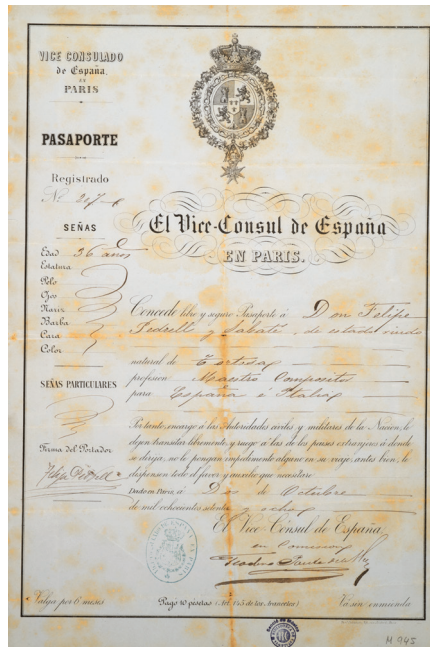 VICE CONSULADO
de España,
EN
PARIS
PASAPORTE
Registrado
Nº 207
SEÑAS
Edad 36 años
Estatura
Pelo
Ojos
Nariz
Barba
Cara
Color
SEÑAS PARTICULARES
Firma del Portador
El Vice-Consul de España
EN PARIS.
Concede libre y seguro Pasaporte á Don Felipe
Pedrell y Sabaté, de estado viudo
natural de Tortosa
profesion Maestro Compositor
para España é Italia
Por tanto, encargo á las Autoridades civiles y militares de la Nacion, le
dejen transitar libremente, y ruego á las de los paises extrangeros á donde
se dirija, no le pongan impedimento alguno en su viage, antes bien, le
dispensen todo el favor y auxilio que necesitare.
Dado en Paris, á Dos de Octubre
de mil ochocientos setenta y ocho
El Vice-Consul de España,
Valga por 6 meses
Pago 10 pesetas (Art. 145 de los Aranceles)
Va sin enmienda
M 945